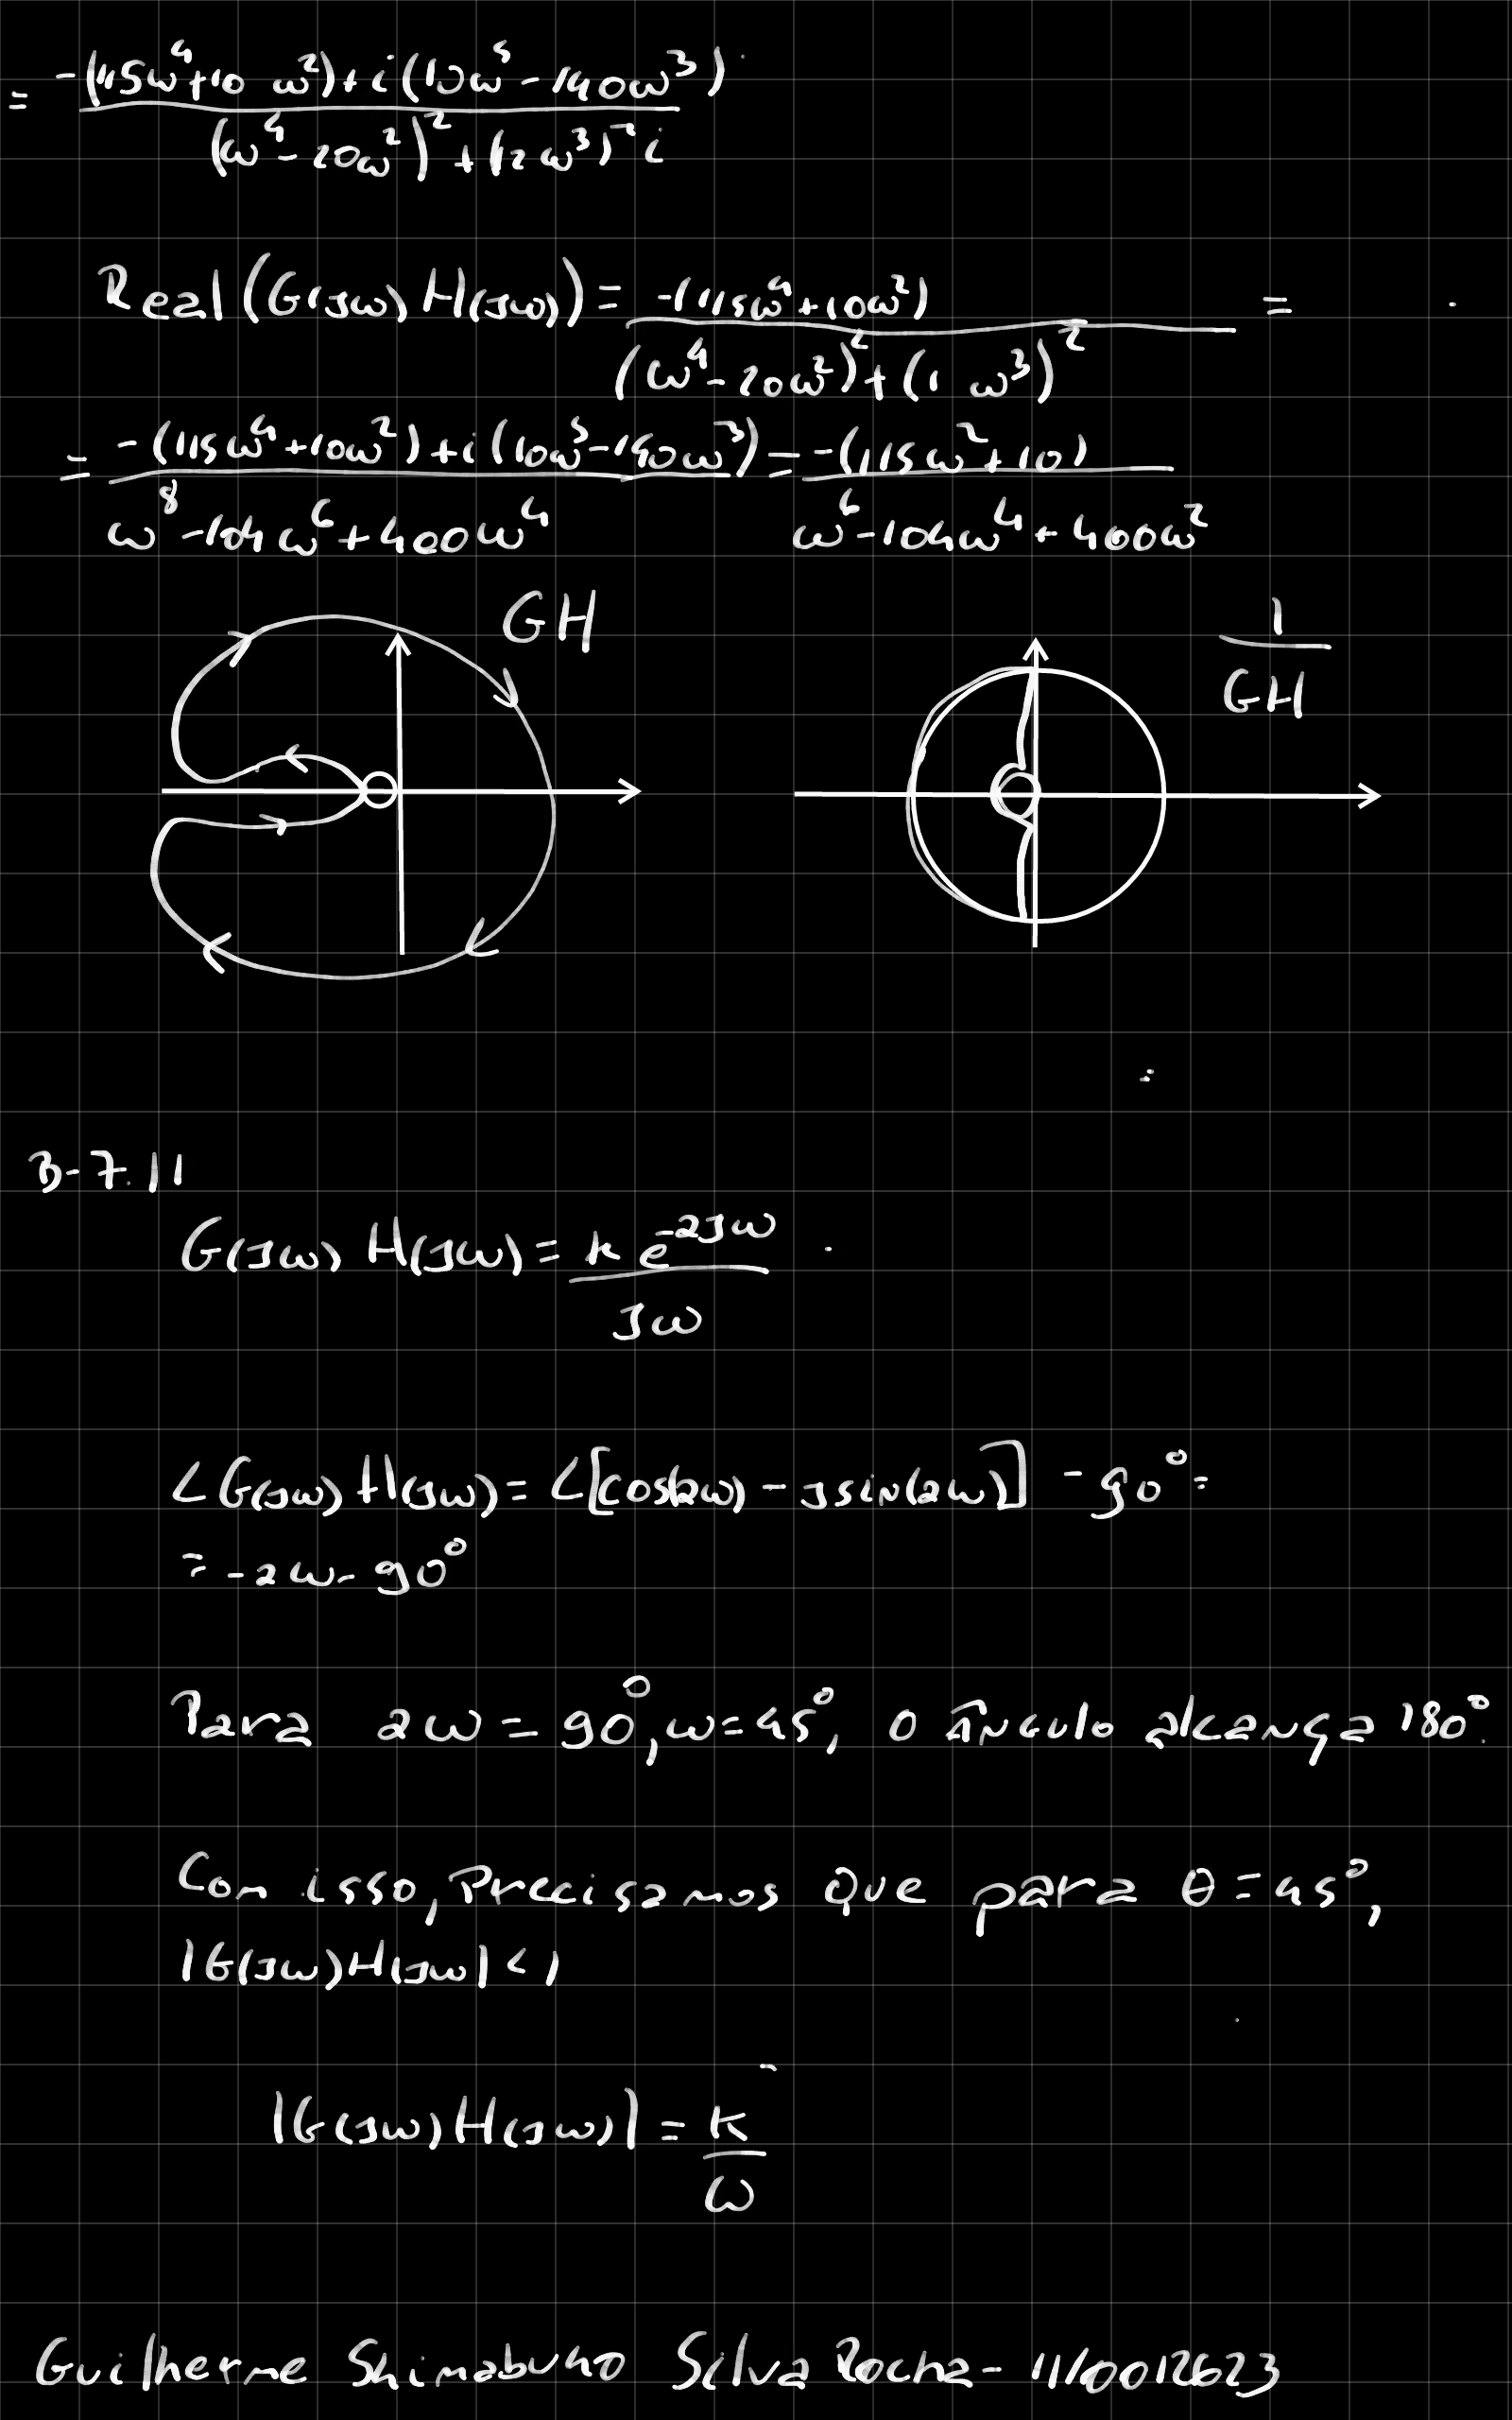 = -(115ω⁴+10 ω²)+i(10ω⁵-140ω³) / (ω⁴-20ω²)²+(12ω³)² i
Real(G(jω)H(jω))= -(115ω⁴+10ω²) / (ω⁴-20ω²)²+(1 ω³)² =
= -(115ω⁴+10ω²)+i(10ω⁵-140ω³) / ω⁸-104ω⁶+400ω⁴ = -(115ω²+10) / ω⁶-104ω⁴+400ω²
GH
1/GH
B-7.11
G(jω) H(jω)= k e^-2jω / jω
∠G(jω)H(jω)= ∠[cos(2ω)-jsin(2ω)] -90°=
=-2ω-90°
Para 2ω=90°,ω=45°, o ângulo alcança 180°.
Com isso, Precisamos que para θ=45°,
|G(jω)H(jω|<1
|G(jω)H(jω)|= K/ω
Guilherme Shimabuko Silva Rocha-11/0012623